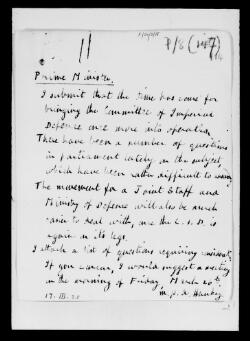 Prime Minister.
I submit that the time has come for
bringing the Committee of Imperial
Defence once more into operation.
There have been a number of questions
in parliament lately on the subject,
which have been rather difficult to answer.
The movement for a Joint Staff and
Ministry of Defence will also be much
easier to deal with, once the C.I.D. is
again on its legs.
I attach a list of questions requiring
If you concur, I would suggest a meeting
on the morning of Friday, March
M.P.A. Hankey
17. III.